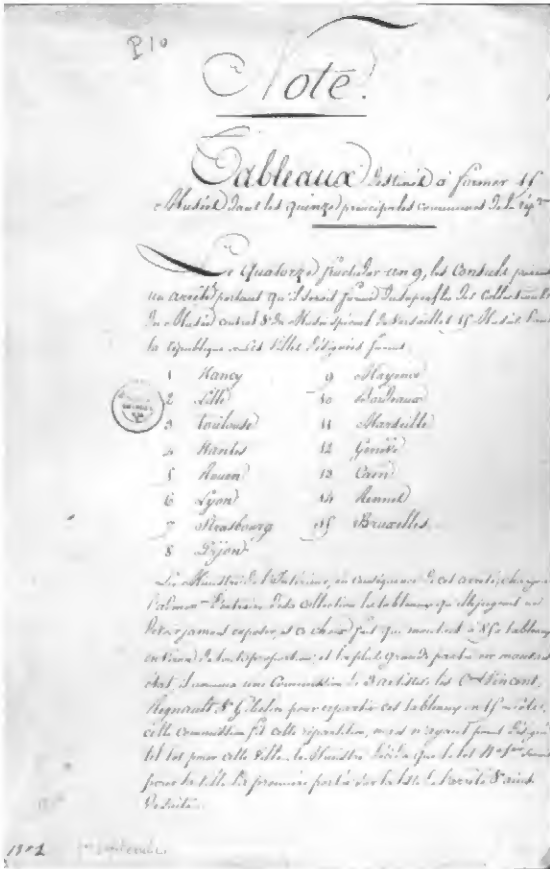 P 10
Note.
Tableaux destinés à former 15
Musées dans les quinze principales communes de la rép.
Le quatorze fructidor an 9, les Consuls
un arrêté portant qu'il serait formé des Collections
du Musée central & du Musée spécial de Versailles 15 Musées dans
la République les Villes désignées furent
1 Nancy
2 Lille
3 Toulouse
4 Nantes
5 Rouen
6 Lyon
7 Strasbourg
8 Dijon
9 Mayence
10 Bordeaux
11 Marseille
12 Genève
13 Caen
14 Rennes
15 Bruxelles
Le Ministre de l'Intérieur, en conséquence de cet arrêté, chargea
l'admon d'extraire de la Collection les tableaux qu'elle jugeait ne
exposer, et ce choix fait qui montait à 850 tableaux
environ de toute proportion et la plus grande partie en mauvais
état, il nomma une Commission de 3 artistes les Cens Vincent,
Regnault & Gibelin pour répartir ces tableaux en 15 lots,
cette commission fit cette répartition, mais n'ayant point désigné
tel lot pour telle Ville, le Ministre décida que le lot No 1er
pour la ville la première portée sur la liste de l'arrêté & ainsi
de suite.
1801
1er